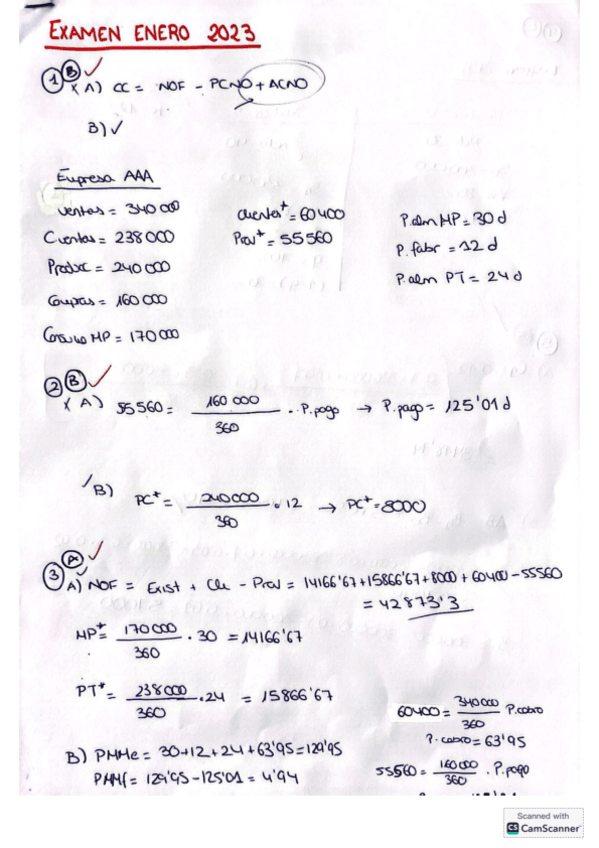 EXAMEN ENERO 2023
1 B ✓
x A) CC = NOF - PCNO + ACNO
B) ✓
Empresa AAA
Ventas = 340 000
Clientes* = 60 400
P. alm MP = 30 d
C. ventas = 238 000
Prov* = 55 560
P. fabr = 12 d
Producc = 240 000
P. alm PT = 24 d
Compras = 160 000
Consumo MP = 170 000
2 B ✓
x A) 55 560 = 160 000 / 360 · P. pago → P. pago = 125'01 d
✓ B) PC* = 240 000 / 360 · 12 → PC* = 8000
3 A ✓
A) NOF = Exist + Cli - Prov = 14166'67 + 15866'67 + 8000 + 60400 - 55560
= 42873'3
MP* = 170 000 / 360 · 30 = 14166'67
PT* = 238 000 / 360 · 24 = 15866'67
60400 = 340 000 / 360 P. cobro
P. cobro = 63'95
B) PMMe = 30 + 12 + 24 + 63'95 = 129'95
55560 = 160 000 / 360 · P. pago
PMMf = 129'95 - 125'01 = 4'94
Scanned with
CS CamScanner